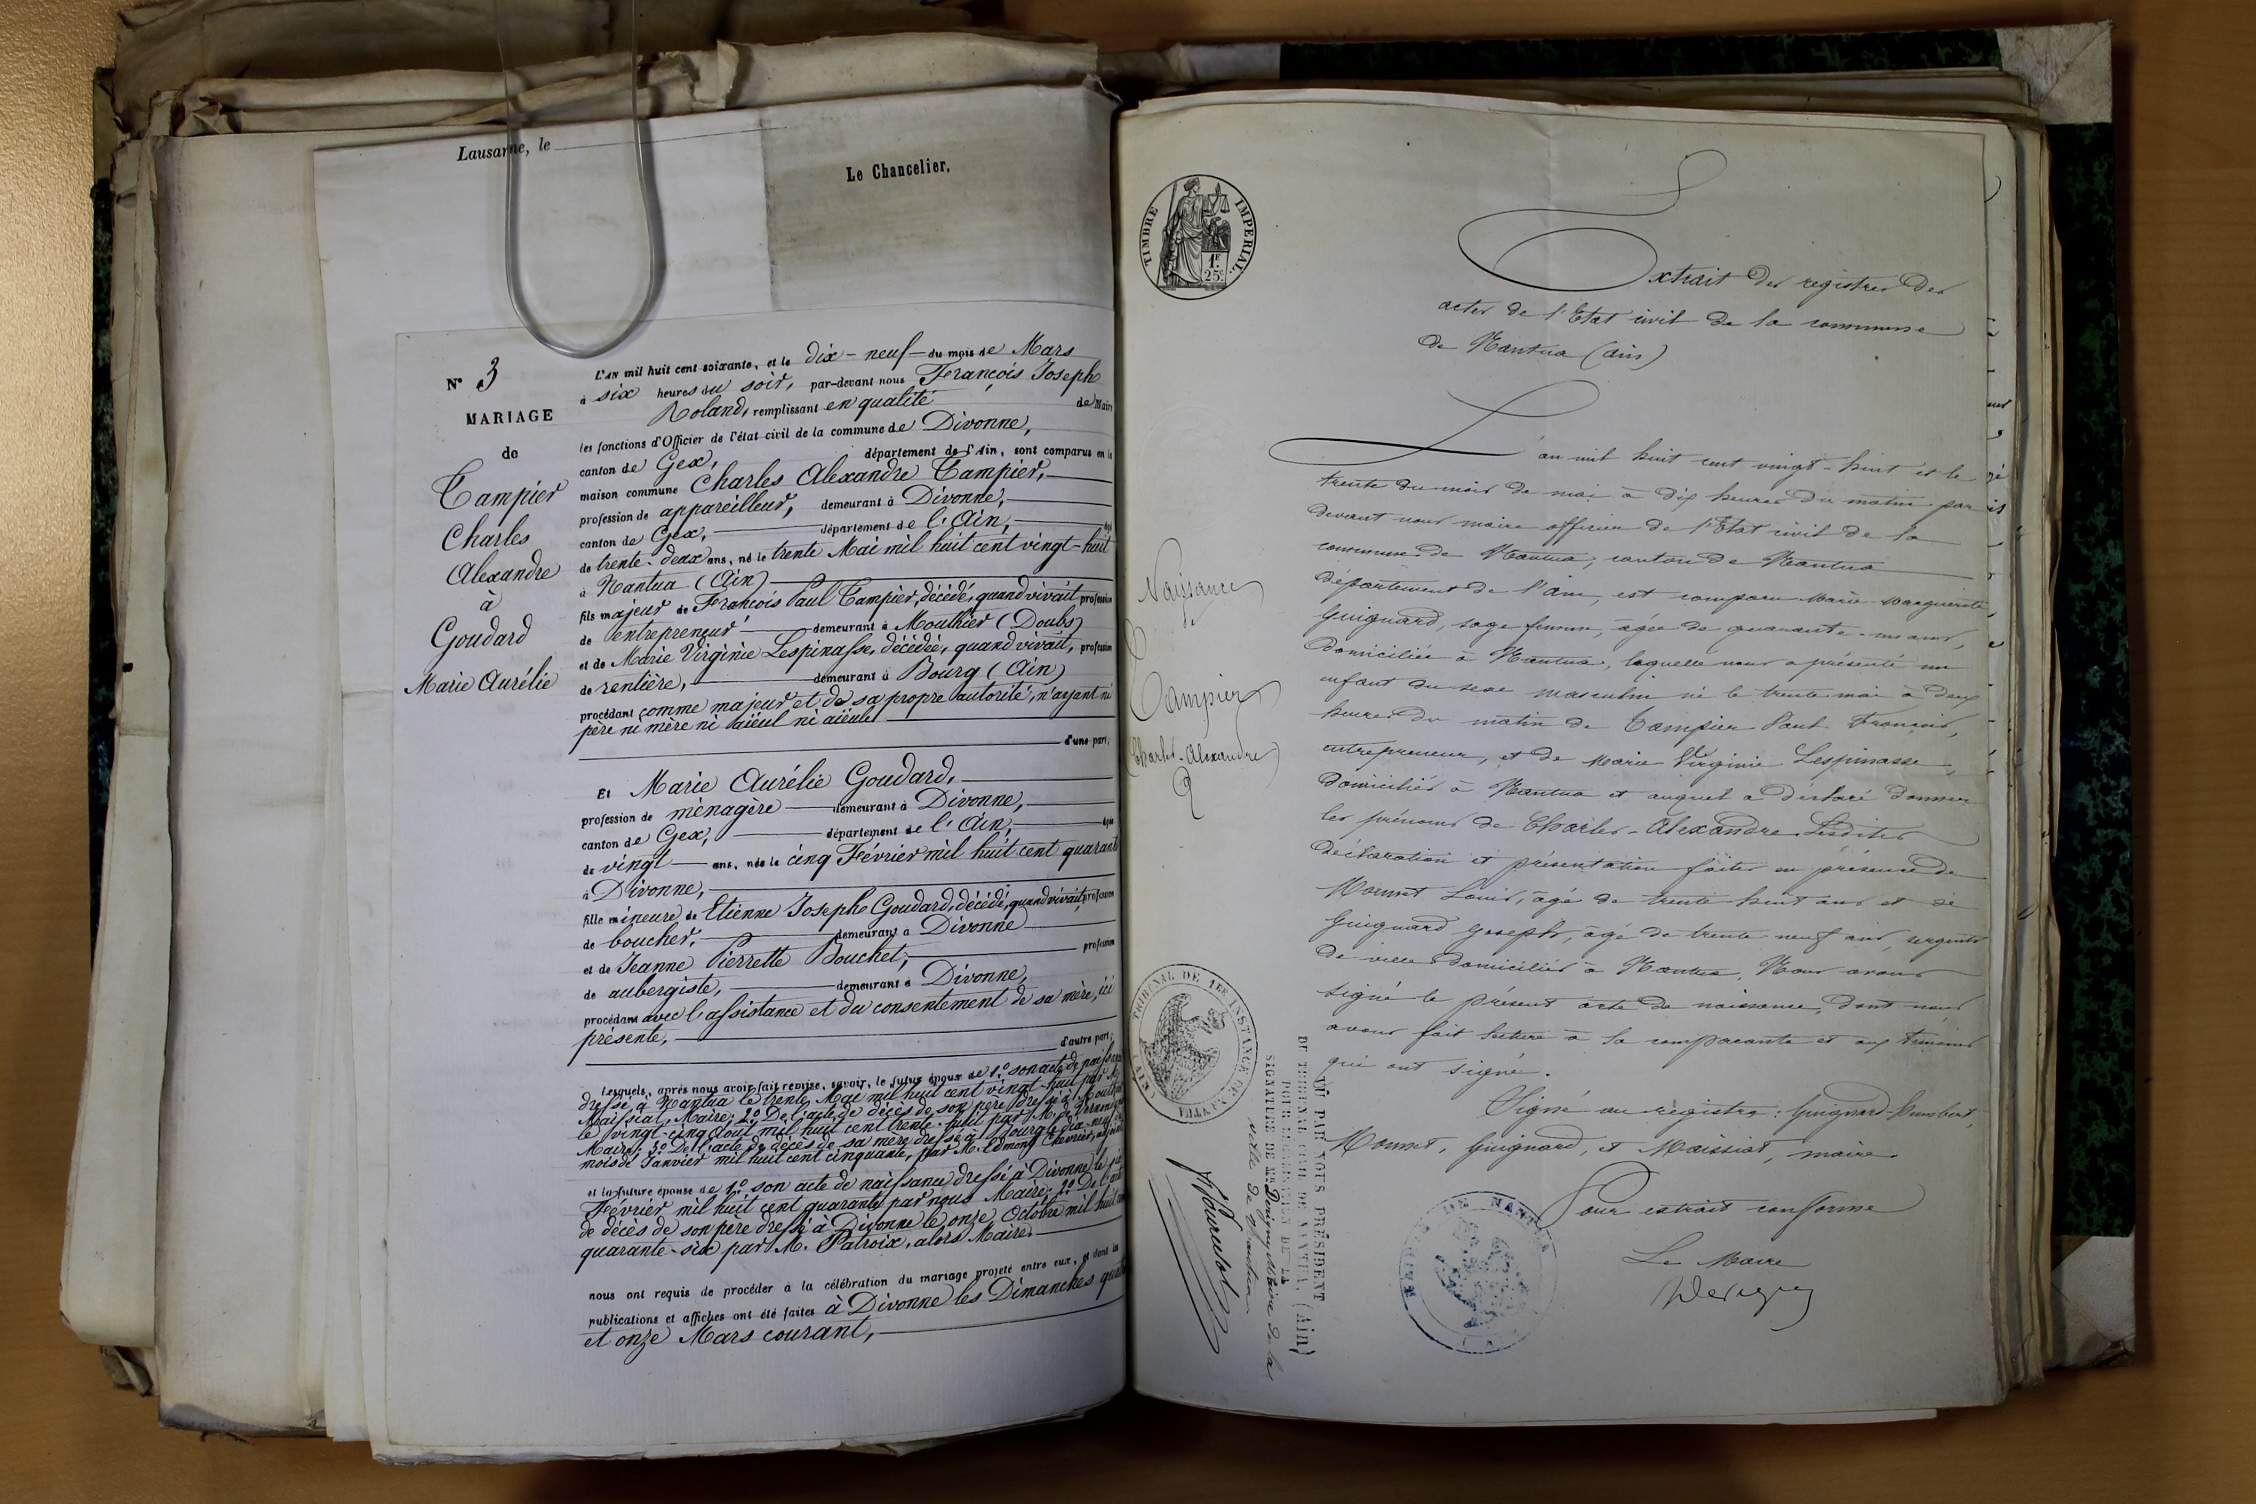 Lausanne, le
Le Chancelier,
N° 3
MARIAGE
de
Tampier
Charles
Alexandre
à
Goudard
Marie Aurélie
L'AN mil huit cent soixante, et le dix-neuf du mois de Mars
à six heures du soir, par-devant nous François Joseph
Roland, remplissant en qualité de Maire
les fonctions d'Officier de l'état civil de la commune de Divonne,
canton de Gex, département de l'Ain, sont comparus en la
maison commune Charles Alexandre Tampier,
profession de appareilleur, demeurant à Divonne,
canton de Gex, département de l'Ain, âgé
de trente-deux ans, né le trente Mai mil huit cent vingt-huit
à Nantua (Ain)
fils majeur de François Paul Tampier, décédé, quand vivait profession
de entrepreneur demeurant à Mouthier (Doubs)
et de Marie Virginie Lespinasse, décédée, quand vivait, profession
de rentière, demeurant à Bourg (Ain)
procédant comme majeur et de sa propre autorité, n'ayant ni
père ni mère ni aïeul ni aïeule
d'une part;
Et Marie Aurélie Goudard,
profession de ménagère demeurant à Divonne,
canton de Gex, département de l'Ain, âgée
de vingt ans, née le cinq Février mil huit cent quarante
à Divonne,
fille mineure de Etienne Joseph Goudard, décédé, quand vivait, profession
de boucher, demeurant à Divonne
et de Jeanne Pierrette Bouchet, profession
de aubergiste, demeurant à Divonne,
procédant avec l'assistance et du consentement de sa mère, ici
présente,
d'autre part;
Lesquels, après nous avoir fait remise, savoir, le futur époux de 1.° son acte de naissance
dressé à Nantua le trente Mai mil huit cent vingt-huit par M.
Maissiat, Maire; 2.° De l'acte de décès de son père dressé à Mouthier
le vingt-cinq Août mil huit cent trente-huit par M.
Maire; 3.° De l'acte de décès de sa mère dressé à Bourg le dix-neuf
mois de Janvier mil huit cent cinquante, par M. Edmond Chevrier, adjoint
et la future épouse de 1.° son acte de naissance dressé à Divonne le six
Février mil huit cent quarante par nous Maire; 2.° De l'acte
de décès de son père dressé à Divonne le onze Octobre mil huit cent
quarante-six par M. Patroix, alors Maire.
nous ont requis de procéder à la célébration du mariage projeté entre eux, et dont les
publications et affiches ont été faites à Divonne les Dimanches quatre
et onze Mars courant,
TIMBRE IMPERIAL.
1F.
25C.
Extrait des registres des
actes de l'Etat civil de la commune
de Nantua (Ain)
Naissance
de
Tampier
Charles-Alexandre
L'an mil huit cent vingt-huit et le
trente du mois de mai à dix heures du matin par
devant nous maire officier de l'Etat civil de la
commune de Nantua, canton de Nantua
département de l'ain, est comparu Marie Marguerite
Guignard, sage femme, âgée de quarante-un ans,
domiciliée à Nantua, laquelle nous a présenté un
enfant du sexe masculin né le trente mai à deux
heures du matin de Tampier Paul François,
entrepreneur, et de Marie Virginie Lespinasse,
domiciliés à Nantua et auquel a déclaré donner
les prénoms de Charles-Alexandre. Lesdites
déclaration et présentation faites en présence de
Monnet Louis, âgé de trente huit ans et de
Guignard Joseph, âgé de trente neuf ans, sergents
de ville domiciliés à Nantua. Nous avons
signé le présent acte de naissance, dont nous
avons fait lecture à la comparante et aux témoins
qui ont signé.
Signé au registre: Guignard Humbert,
Monnet, Guignard, et Maissiat, maire.
Pour extrait conforme
Le Maire
TRIBUNAL DE 1RE INSTANCE DE NANTUA
VU PAR NOUS PRÉSIDENT
DU TRIBUNAL CIVIL DE NANTUA, (Ain)
POUR LÉGALISATION DE LA
SIGNATURE DE Mr Maire de la
ville de Nantua
MAIRIE DE NANTUA